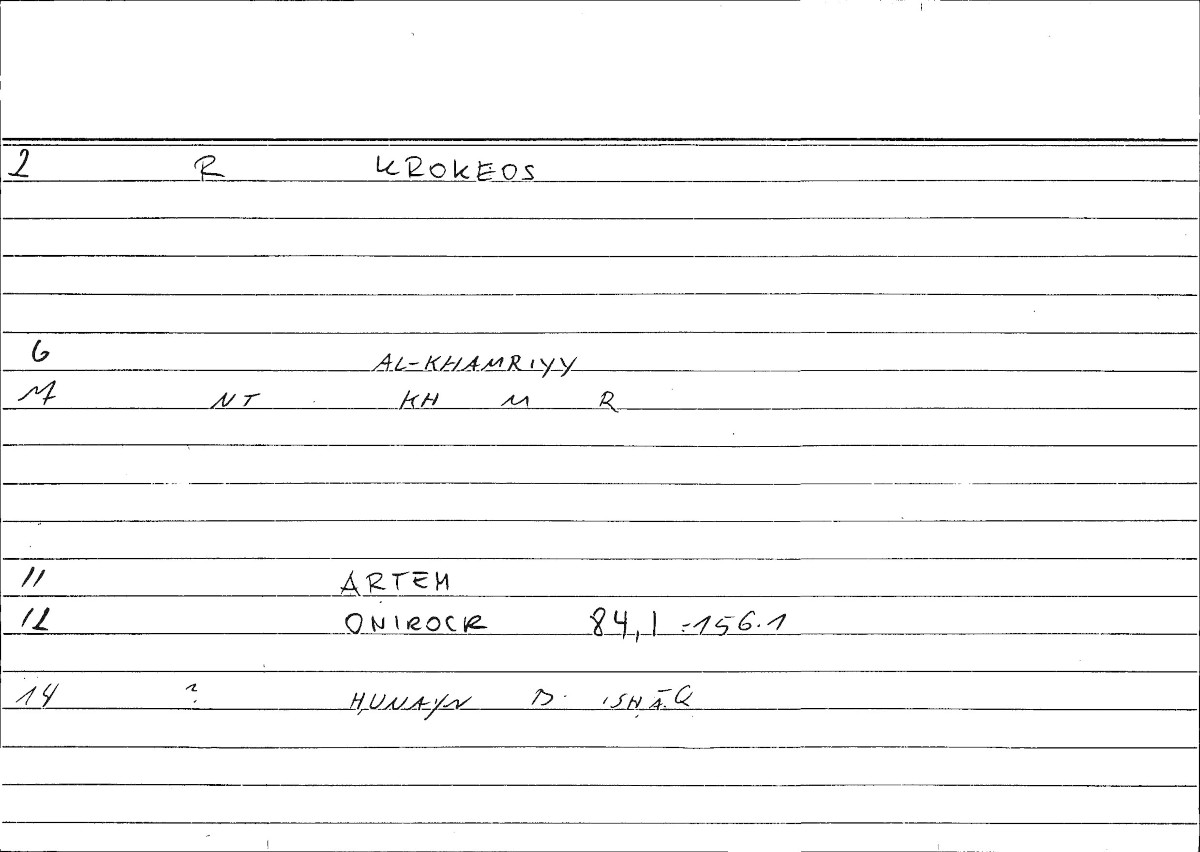 2 R KROKEOS
6 AL-KHAMRIYY
NT KH M R
11 ARTEM
12 ONIROCR 84,1 =156.1
14 ? ḤUNAYN B. ISḤĀQ